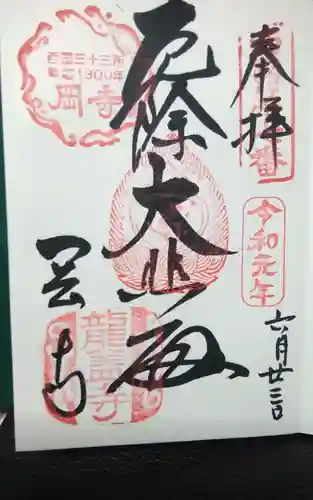 奉拝
番
令和元年
六月廿三日
厄除大悲殿
西国三十三所
草創1300年
岡寺
岡寺
龍蓋寺